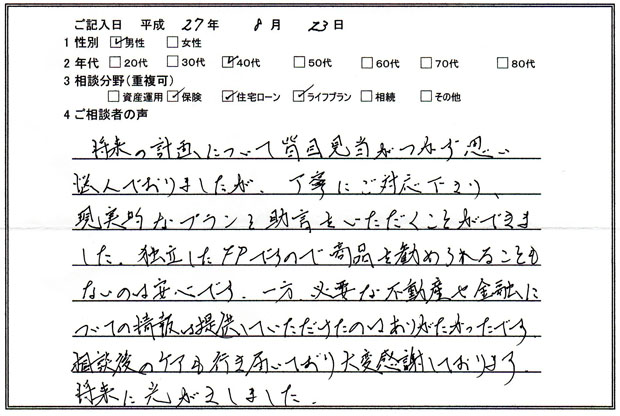 ご記入日 平成 27年 8月 23日
1 性別 ☑男性 □女性
2 年代 □20代 □30代 ☑40代 □50代 □60代 □70代 □80代
3 相談分野(重複可)
□資産運用 ☑保険 ☑住宅ローン ☑ライフプラン □相続 □その他
4 ご相談者の声
将来の計画について皆目見当がつかず思い
悩んでおりましたが、丁寧にご対応下さり、
現実的なプランと助言をいただくことができま
した。独立したFPですので商品を勧められることも
ないのは安心です。一方、必要な不動産や金融に
ついての情報は提供していただけたのはありがたかったです。
相談後のケアも行き届いており大変感謝しております。
将来に光がさしました。